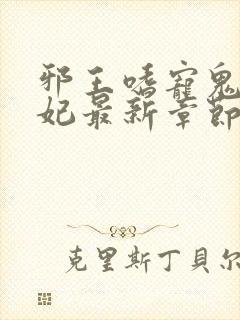 邪王嗜宠鬼
妃最新章节
克里斯丁贝尔